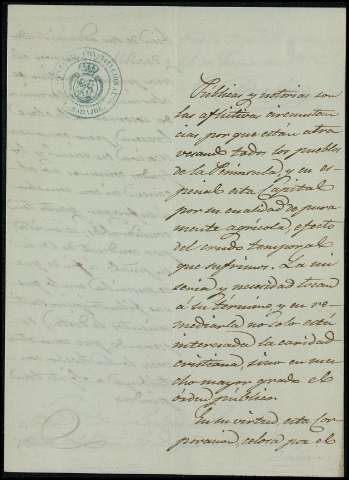 Públicas y notorias son
las aflictivas circunstan
cias porque estan atra
vesando todos los pueblos
de la Peninsula, y en es-
pecial esta Capital
por su cualidad de pura
mente agrícola, efecto
del crudo temporal
que sufrimos. La mi
seria y necesidad tocan
á su término, y en re-
mediarla no solo está
interesada la caridad
cristiana, sino en mu
cho mayor grado el
órden público.
En su virtud, esta Cor
poracion, celosa por el